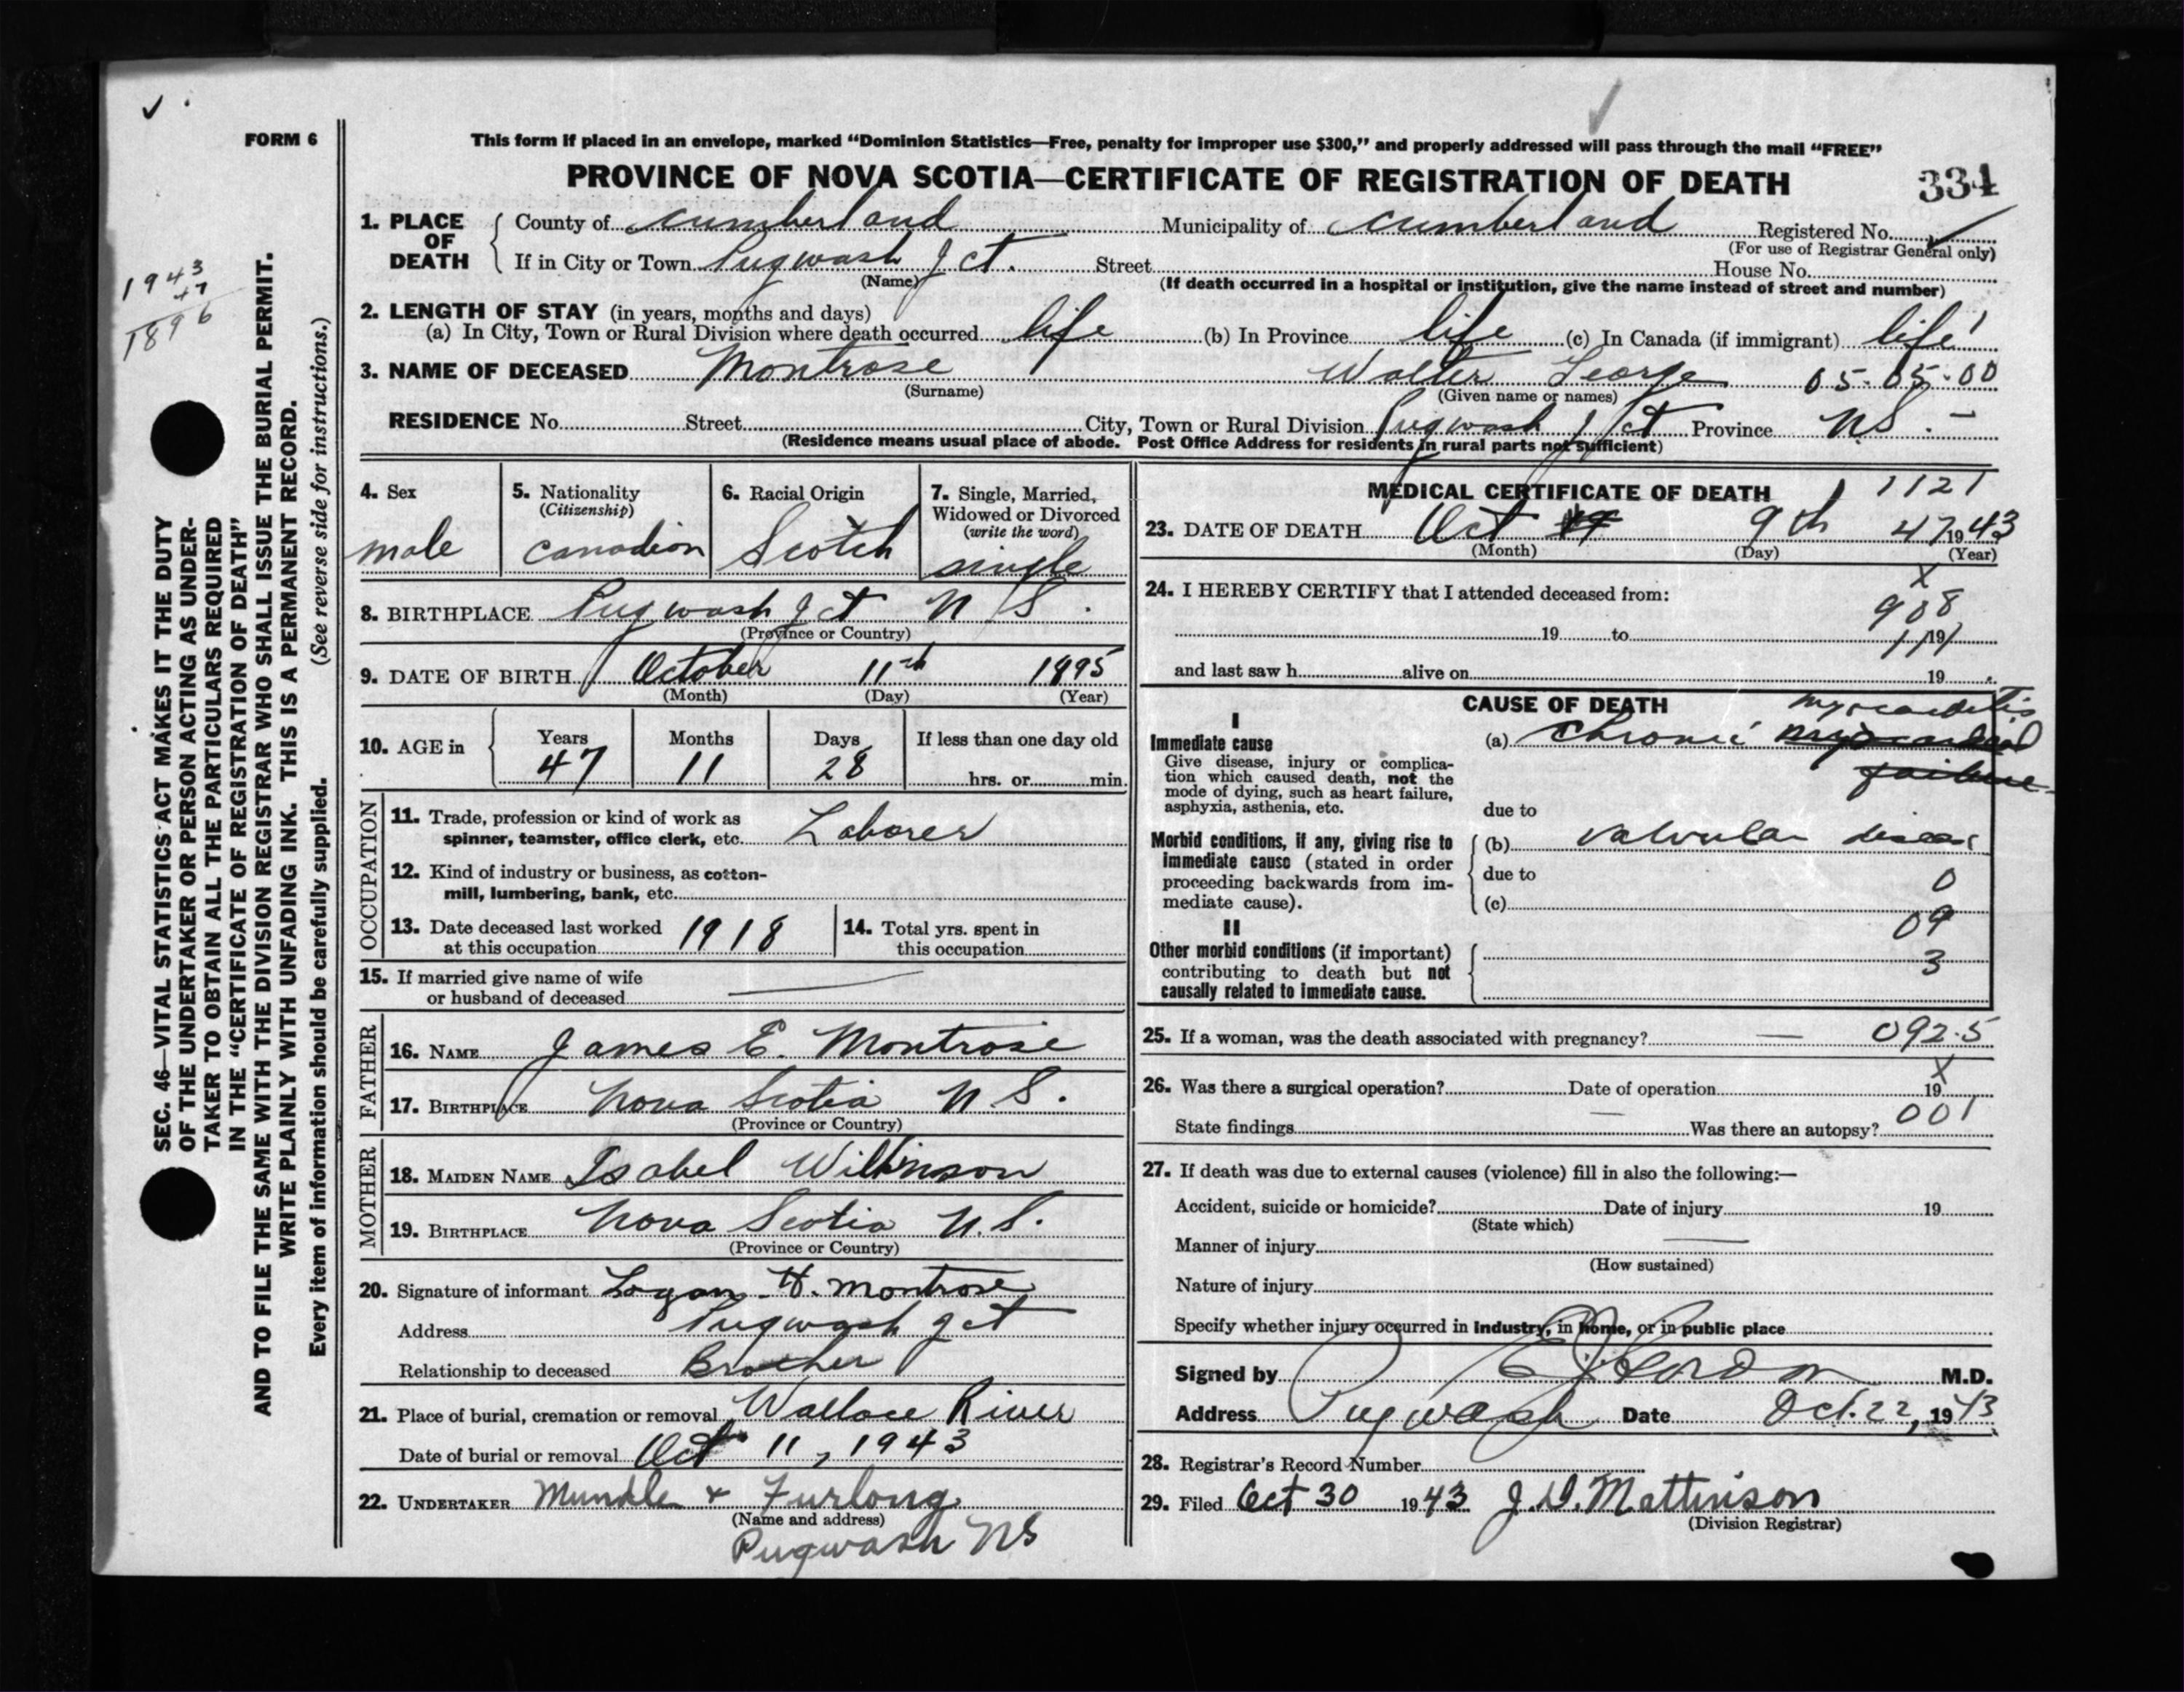 FORM 6
This form if placed in an envelope, marked “Dominion Statistics—Free, penalty for improper use $300,” and properly addressed will pass through the mail “FREE”
PROVINCE OF NOVA SCOTIA—CERTIFICATE OF REGISTRATION OF DEATH
334
1. PLACE OF DEATH
County of Cumberland Municipality of Cumberland Registered No.
(For use of Registrar General only)
If in City or Town Pugwash Jct. Street House No.
(Name)
(If death occurred in a hospital or institution, give the name instead of street and number)
2. LENGTH OF STAY (in years, months and days)
(a) In City, Town or Rural Division where death occurred life (b) In Province life (c) In Canada (if immigrant) life
3. NAME OF DECEASED Montrose Walter George 05-05-00
(Surname) (Given name or names)
RESIDENCE No. Street City, Town or Rural Division Pugwash Jct Province N.S. -
(Residence means usual place of abode. Post Office Address for residents in rural parts not sufficient)
1943
47
1896
SEC. 46—VITAL STATISTICS ACT MAKES IT THE DUTY
OF THE UNDERTAKER OR PERSON ACTING AS UNDER-
TAKER TO OBTAIN ALL THE PARTICULARS REQUIRED
IN THE “CERTIFICATE OF REGISTRATION OF DEATH”
AND TO FILE THE SAME WITH THE DIVISION REGISTRAR WHO SHALL ISSUE THE BURIAL PERMIT.
WRITE PLAINLY WITH UNFADING INK. THIS IS A PERMANENT RECORD.
Every item of information should be carefully supplied. (See reverse side for instructions.)
4. Sex
male
5. Nationality
(Citizenship)
Canadian
6. Racial Origin
Scotch
7. Single, Married,
Widowed or Divorced
(write the word)
single
8. BIRTHPLACE Pugwash Jct N S.
(Province or Country)
9. DATE OF BIRTH October 11th 1895
(Month) (Day) (Year)
10. AGE in
Years Months Days If less than one day old
47 11 28 hrs. or min.
OCCUPATION
11. Trade, profession or kind of work as
spinner, teamster, office clerk, etc. Laborer
12. Kind of industry or business, as cotton-
mill, lumbering, bank, etc.
13. Date deceased last worked
at this occupation 1918
14. Total yrs. spent in
this occupation
15. If married give name of wife
or husband of deceased
FATHER
16. NAME James E. Montrose
17. BIRTHPLACE Nova Scotia N S.
(Province or Country)
MOTHER
18. MAIDEN NAME Isabel Wilkinson
19. BIRTHPLACE Nova Scotia N.S.
(Province or Country)
20. Signature of informant Logan H. Montrose
Address Pugwash Jct
Relationship to deceased Brother
21. Place of burial, cremation or removal Wallace River
Date of burial or removal Oct 11, 1943
22. UNDERTAKER Mundle & Furlong
(Name and address)
Pugwash NS
MEDICAL CERTIFICATE OF DEATH 1121
23. DATE OF DEATH Oct 9th 47 1943
(Month) (Day) (Year)
24. I HEREBY CERTIFY that I attended deceased from:
x
908
19 to 19
and last saw h alive on 19
CAUSE OF DEATH
I
Immediate cause
Give disease, injury or complica-
tion which caused death, not the
mode of dying, such as heart failure,
asphyxia, asthenia, etc.
myocarditis
(a) Chronic myocardial
failure
due to
Morbid conditions, if any, giving rise to
immediate cause (stated in order
proceeding backwards from im-
mediate cause).
(b) valvular disease
due to 0
(c)
09
II
Other morbid conditions (if important)
contributing to death but not
causally related to immediate cause.
3
25. If a woman, was the death associated with pregnancy? — 092.5
x
26. Was there a surgical operation? Date of operation 19
001
State findings Was there an autopsy?
27. If death was due to external causes (violence) fill in also the following:—
Accident, suicide or homicide? Date of injury 19
(State which)
Manner of injury
(How sustained)
Nature of injury
Specify whether injury occurred in industry, in home, or in public place
Signed by Gordon M.D.
Address Pugwash Date Oct. 22, 1943
28. Registrar's Record Number
29. Filed Oct 30 1943 J. D. Mattinson
(Division Registrar)